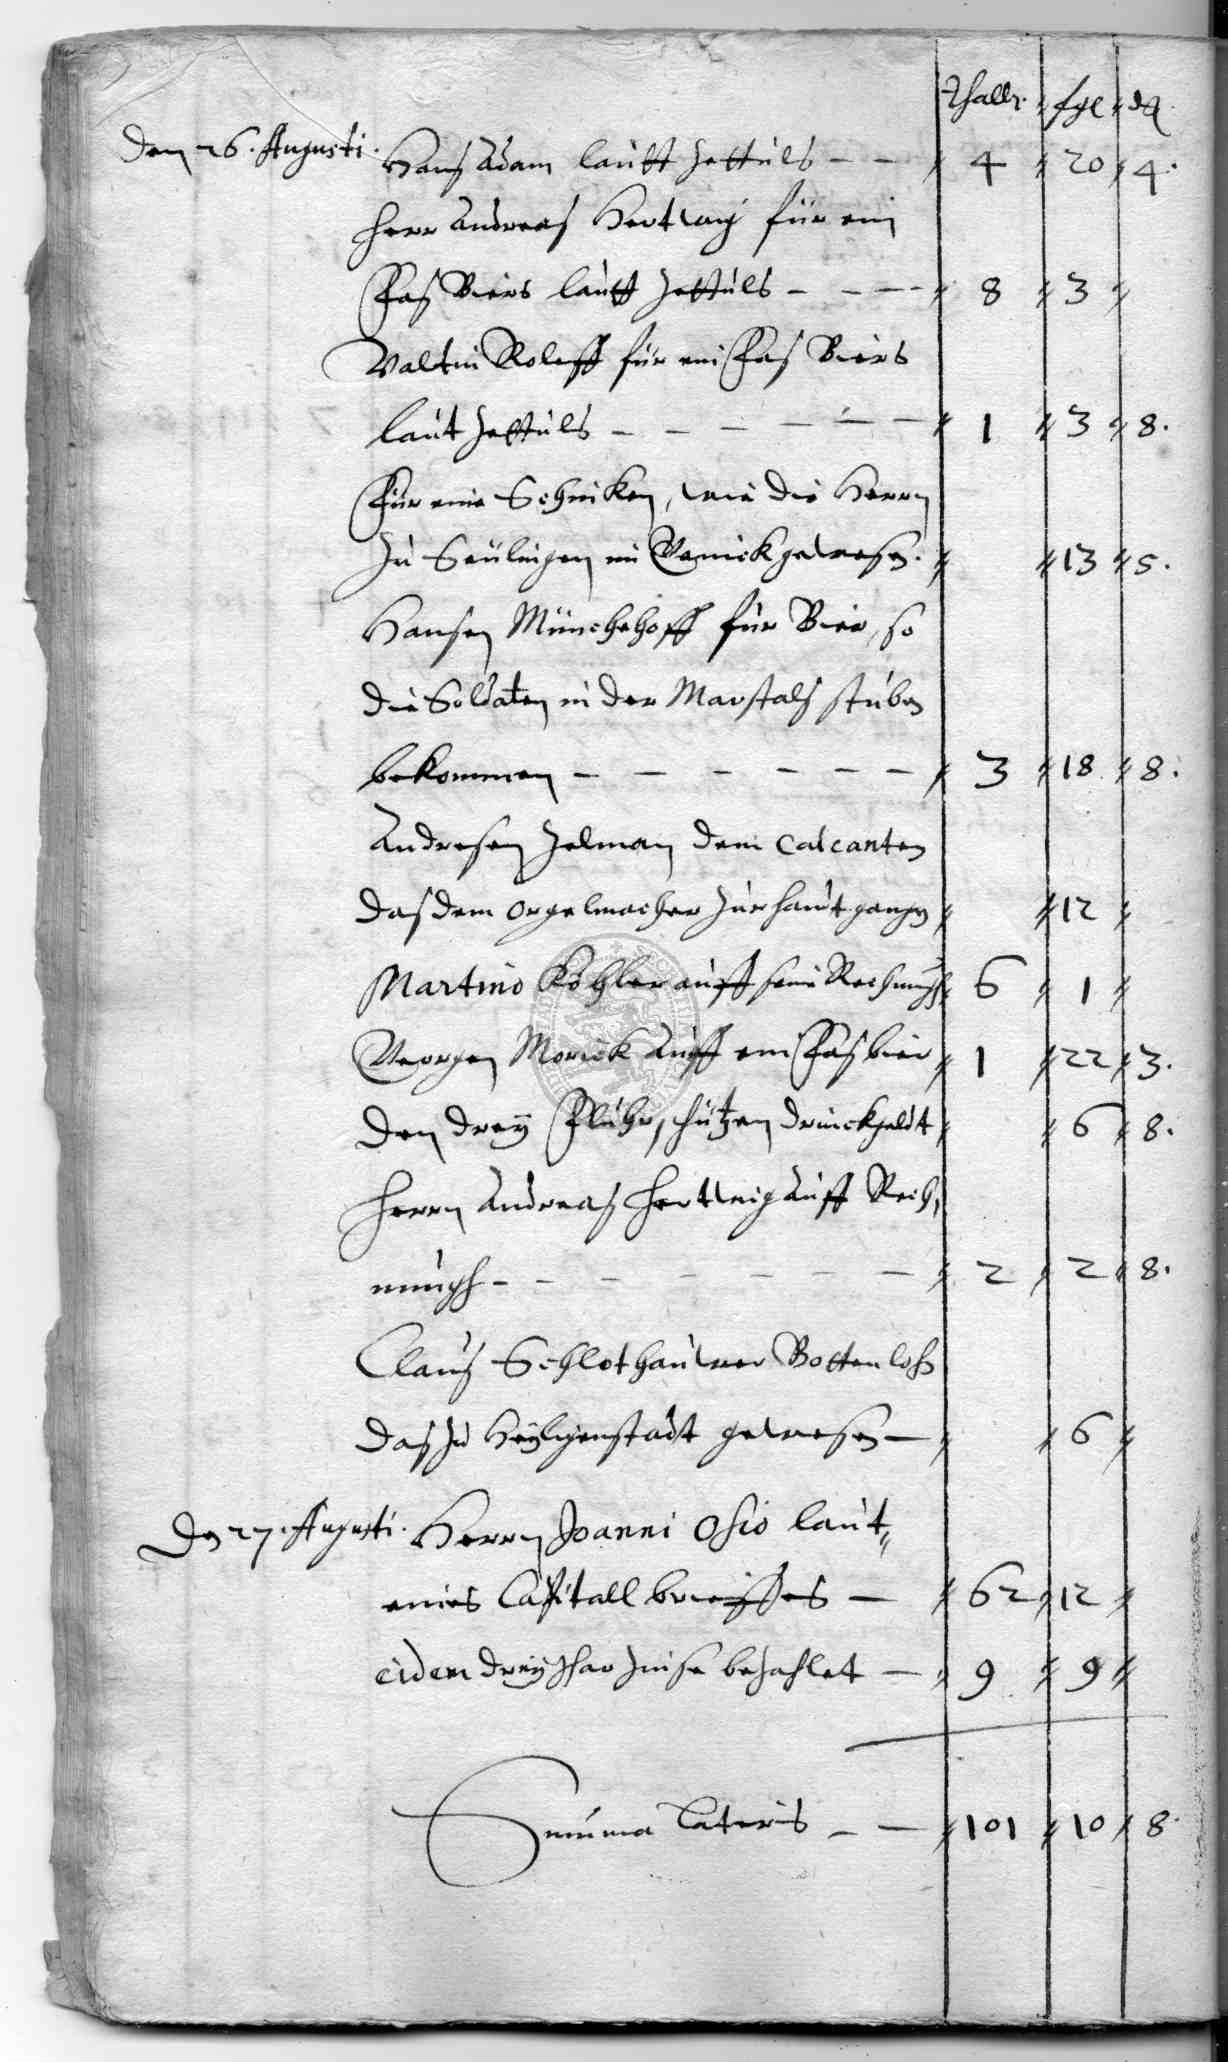 Thallr. ßgl ₰
Den 26. Augusti. Hanß Adam lautt Zettuls – – 4 20 4.
Herr Andreas Hertwig für ein
Faß Biers lautt Zettuls – – – – 8 3
Valtin Roleff für ein Faß Biers
laut Zettuls – – – – – – – 1 3 8.
Für eine Schincken, wie die Herrn
zu Seülingen im gewesen. 13 5.
Hansen Münchehoff für Bier, so
die Soldaten in der Marstals stuben
bekommen – – – – – – 3 18 8.
Andresen Zelman dem Calcanten
das dem Orgelmacher zur handt gangen 12
Martino Köhler auff seine Rechnungh 6 1
Georgen Morick auff ein Faß bier 1 22 3.
Den dreÿ Fluhrschützen drinckgeldt 6 8.
Herrn Andreas Hertwig auff Rech,
nungh – – – – – – – 2 2 8.
Clauß Schlothauwer Bottenlohn
das zu Heÿligenstadt gewesen – 6
Den 27. Augusti. Herrn Joanni Osio laut
eines Capitall brieffes – 62 12
eidem dreÿ Jhar Zinse bezahlet – 9 9
Summa Lateris – – 101 10 8.